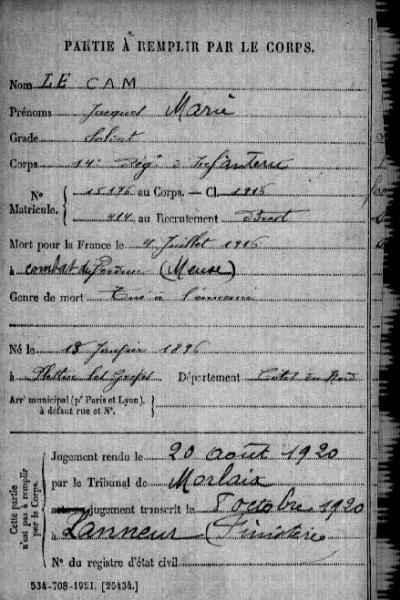 PARTIE À REMPLIR PAR LE CORPS.
Nom LE CAM
Prénoms Jacques Marie
Grade Soldat
Corps 14e Rég. d'Infanterie
N° Matricule. { 15196 au Corps. — Cl. 1915
414 au Recrutement Brest
Mort pour la France le 4 Juillet 1916
à combat de (Meuse)
Genre de mort Tué à l'ennemi
Né le 13 Janvier 1896
à Plestin les Grèves Département Côtes du Nord
Arrt municipal (pr Paris et Lyon), à défaut rue et N°.
Cette partie n'est pas à remplir par le Corps.
Jugement rendu le 20 août 1920
par le Tribunal de Morlaix
jugement transcrit le 8 octobre 1920
à Lanneur (Finistère
N° du registre d'état civil
534-708-1921. [26434.]